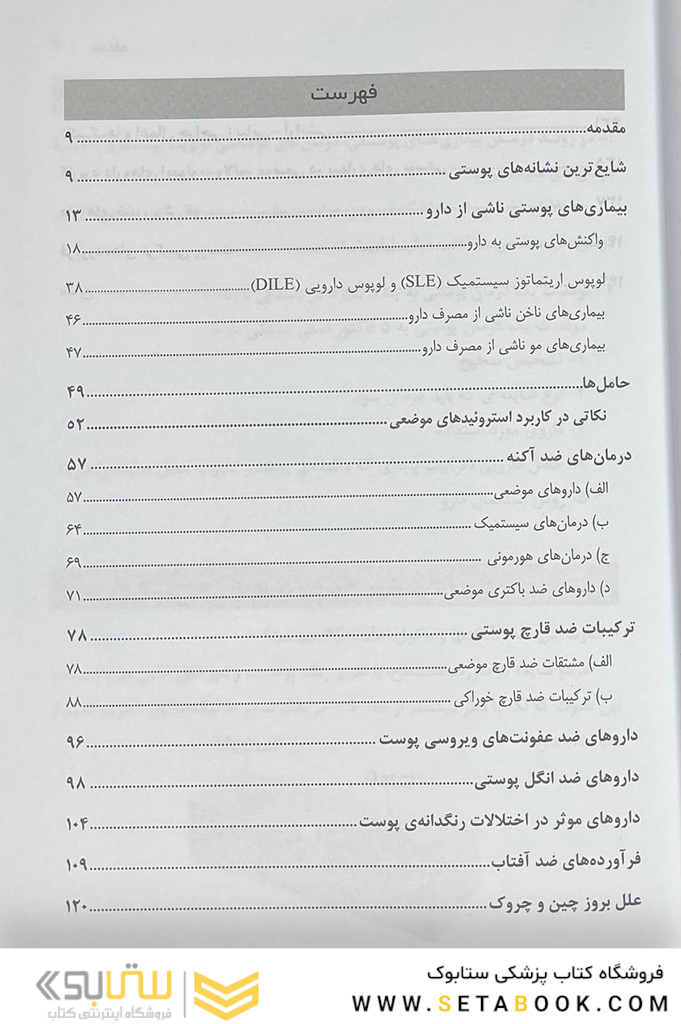 فهرست
مقدمه........................................۹
شایع‌ترین نشانه‌های پوستی........................................۹
بیماری‌های پوستی ناشی از دارو........................................۱۳
واکنش‌های پوستی به دارو........................................۱۸
لوپوس اریتماتوز سیستمیک (SLE) و لوپوس دارویی (DILE)........................................۳۸
بیماری‌های ناخن ناشی از مصرف دارو........................................۴۶
بیماری‌های مو ناشی از مصرف دارو........................................۴۷
حامل‌ها........................................۴۹
نکاتی در کاربرد استروئیدهای موضعی........................................۵۲
درمان‌های ضد آکنه........................................۵۷
الف) داروهای موضعی........................................۵۷
ب) درمان‌های سیستمیک........................................۶۴
ج) درمان‌های هورمونی........................................۶۹
د) داروهای ضد باکتری موضعی........................................۷۱
ترکیبات ضد قارچ پوستی........................................۷۸
الف) مشتقات ضد قارچ موضعی........................................۷۸
ب) ترکیبات ضد قارچ خوراکی........................................۸۸
داروهای ضد عفونت‌های ویروسی پوست........................................۹۶
داروهای ضد انگل پوستی........................................۹۸
داروهای موثر در اختلالات رنگدانه‌ی پوست........................................۱۰۴
فرآورده‌های ضد آفتاب........................................۱۰۹
علل بروز چین و چروک........................................۱۲۰
فروشگاه کتاب پزشکی ستابوک
WWW.SETABOOK.COM
ستابوک
فروشگاه اینترنتی کتاب